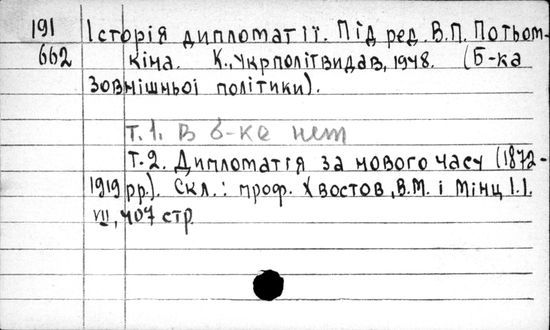 191 Історія дипломатії. Під ред. В.П. Потьом-
662 кіна. К., Укрполітвидав, 1948. (Б-ка
зовнішньої політики).
т. 1. в б-ке нет
т. 2. Дипломатія за нового часу (1872-
1919 рр.). Скл.: проф. Хвостов, В.М. і Мінц І.І.
VII, 407 стр.